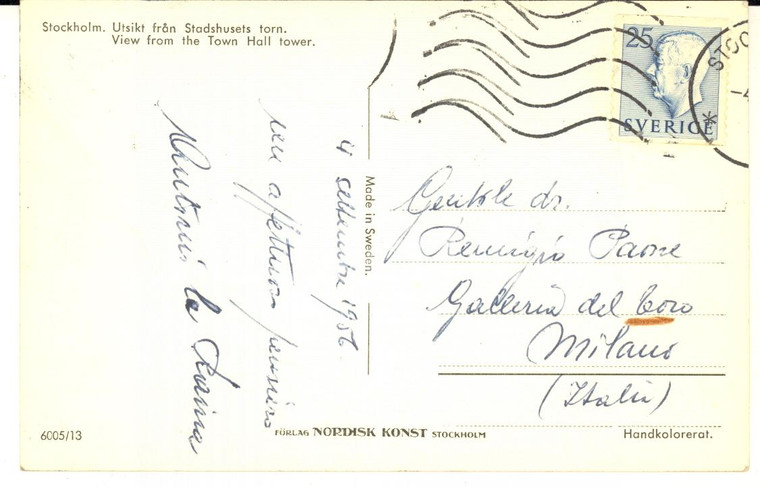 Stockholm. Utsikt från Stadshusets torn.
View from the Town Hall tower.
25
SVERIGE
STOC
4 settembre 1956
un affettuoso pensiero
la
Made in Sweden.
Gentile dr.
Remigio Paone
Galleria del Toro
Milano
(Italia)
6005/13
FÖRLAG NORDISK KONST STOCKHOLM
Handkolorerat.